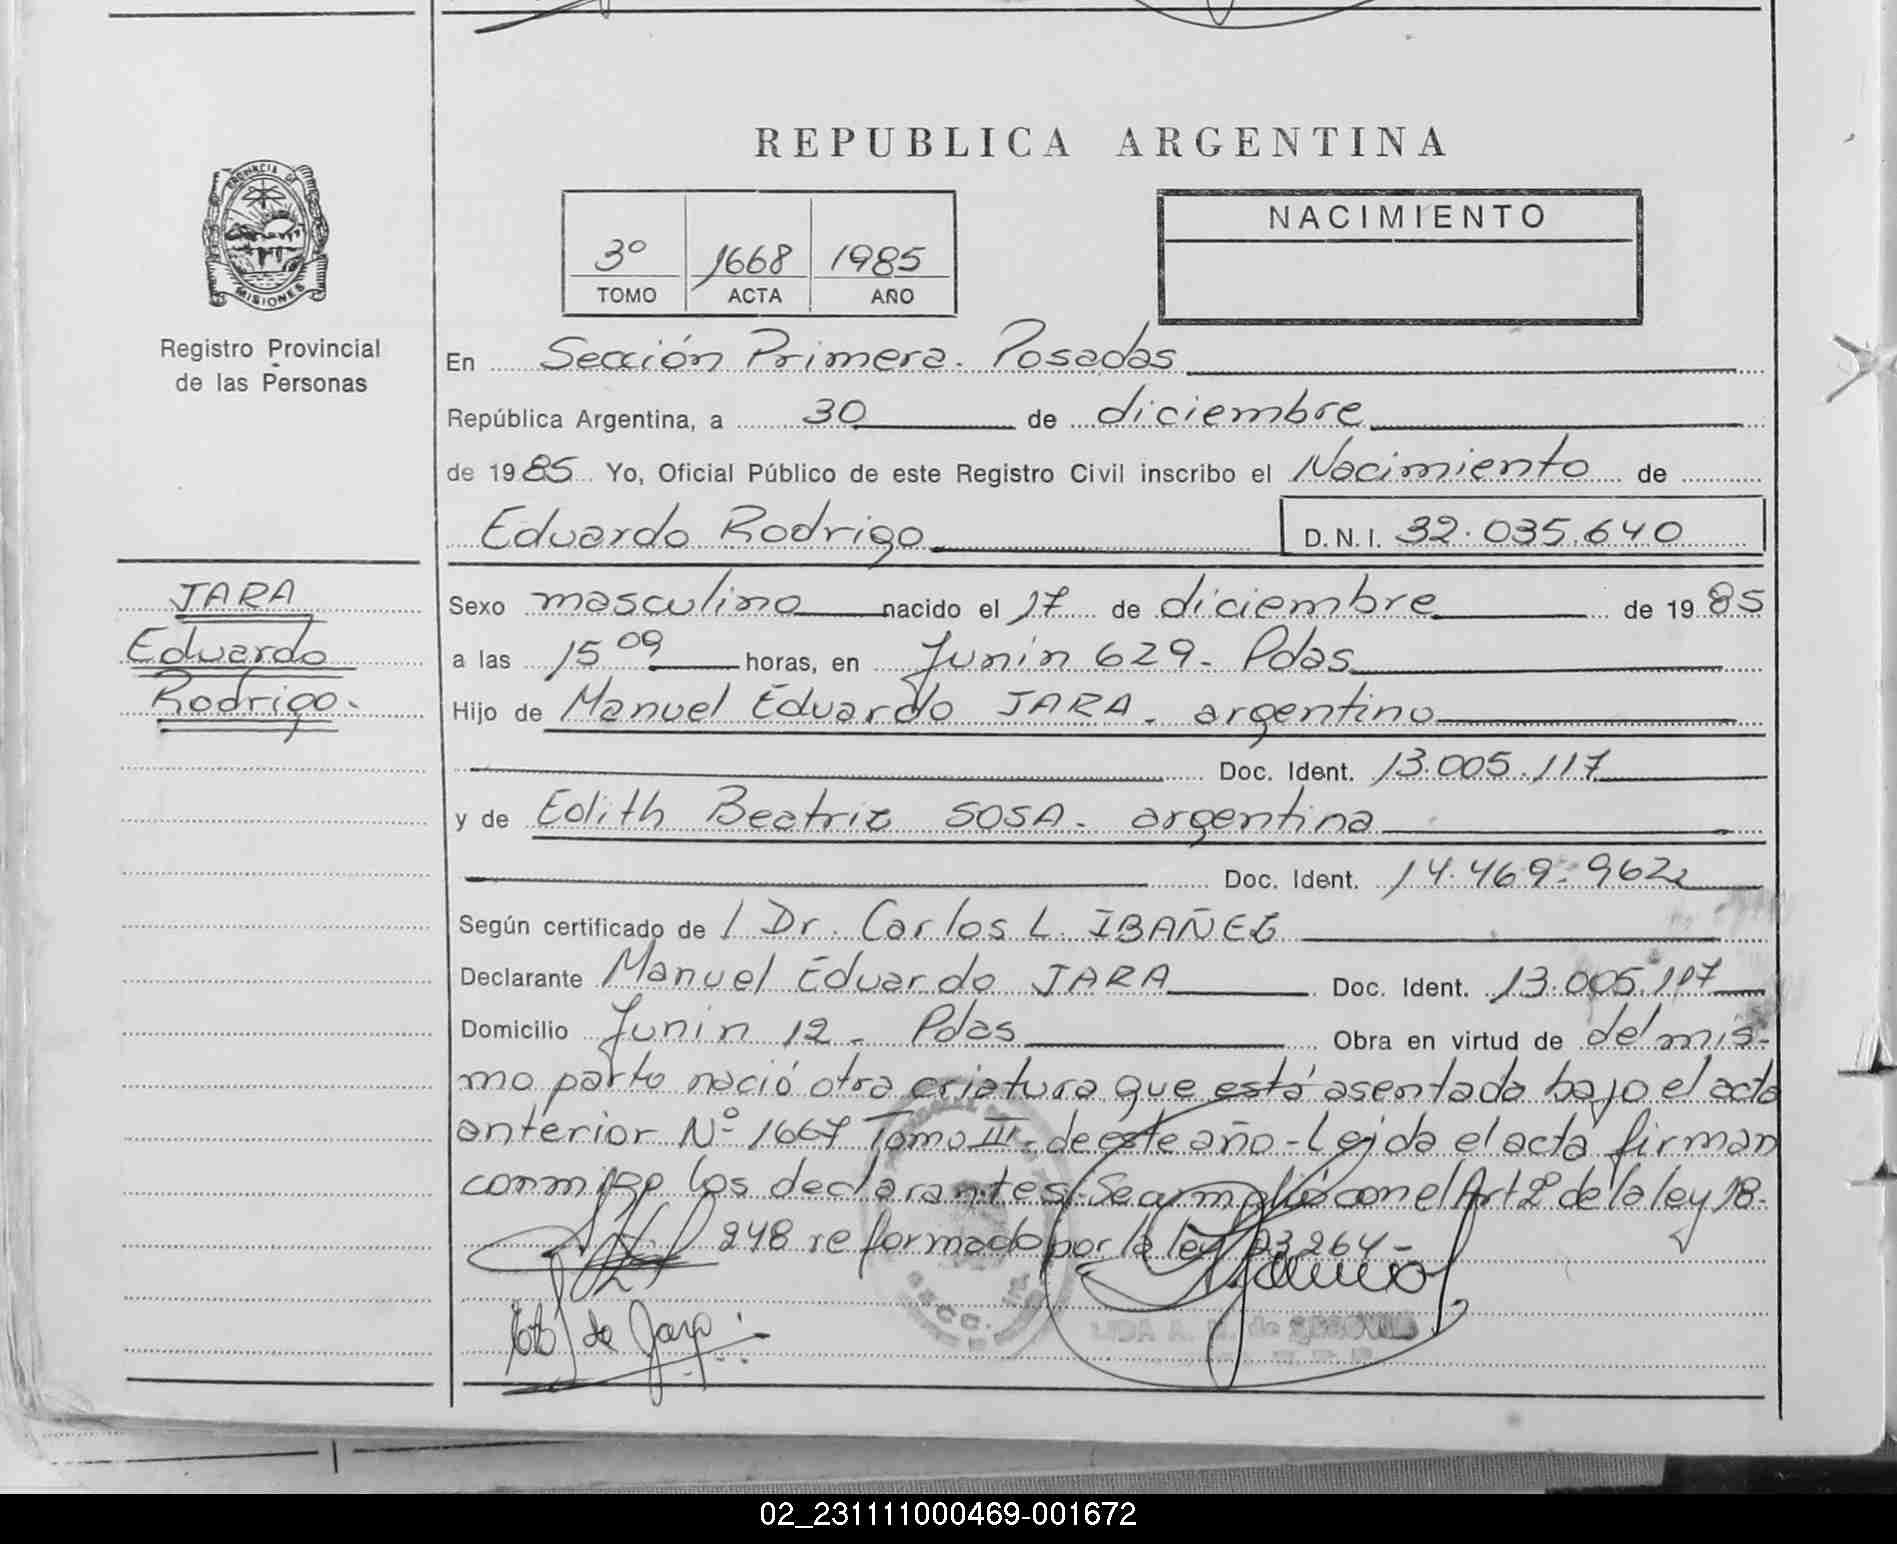 REPUBLICA ARGENTINA
PROVINCIA DE
MISIONES
Registro Provincial
de las Personas
3º 1668 1985
TOMO ACTA AÑO
NACIMIENTO
En Sección Primera. Posadas
República Argentina, a 30 de diciembre
de 1985 Yo, Oficial Público de este Registro Civil inscribo el Nacimiento de
Eduardo Rodrigo D.N.I. 32.035.640
JARA
Eduardo
Rodrigo.
Sexo masculino nacido el 17 de diciembre de 1985
a las 15 09 horas, en Junin 629 - Pdas
Hijo de Manuel Eduardo JARA - argentino
Doc. Ident. 13.005.117
y de Edith Beatriz SOSA - argentina
Doc. Ident. 14.469.962
Según certificado de / Dr. Carlos L. IBAÑEZ
Declarante Manuel Eduardo JARA Doc. Ident. 13.005.117
Domicilio Junin 12 - Pdas Obra en virtud de del mis-
mo parto nació otra criatura que está asentada bajo el acta
anterior Nº 1667 Tomo III - de este año - Leida el acta firman
conmigo los declarantes. Se cumplió con el Art 2º de la ley 18.
248 reformado por la ley 23264 -
de Jara
02_231111000469-001672